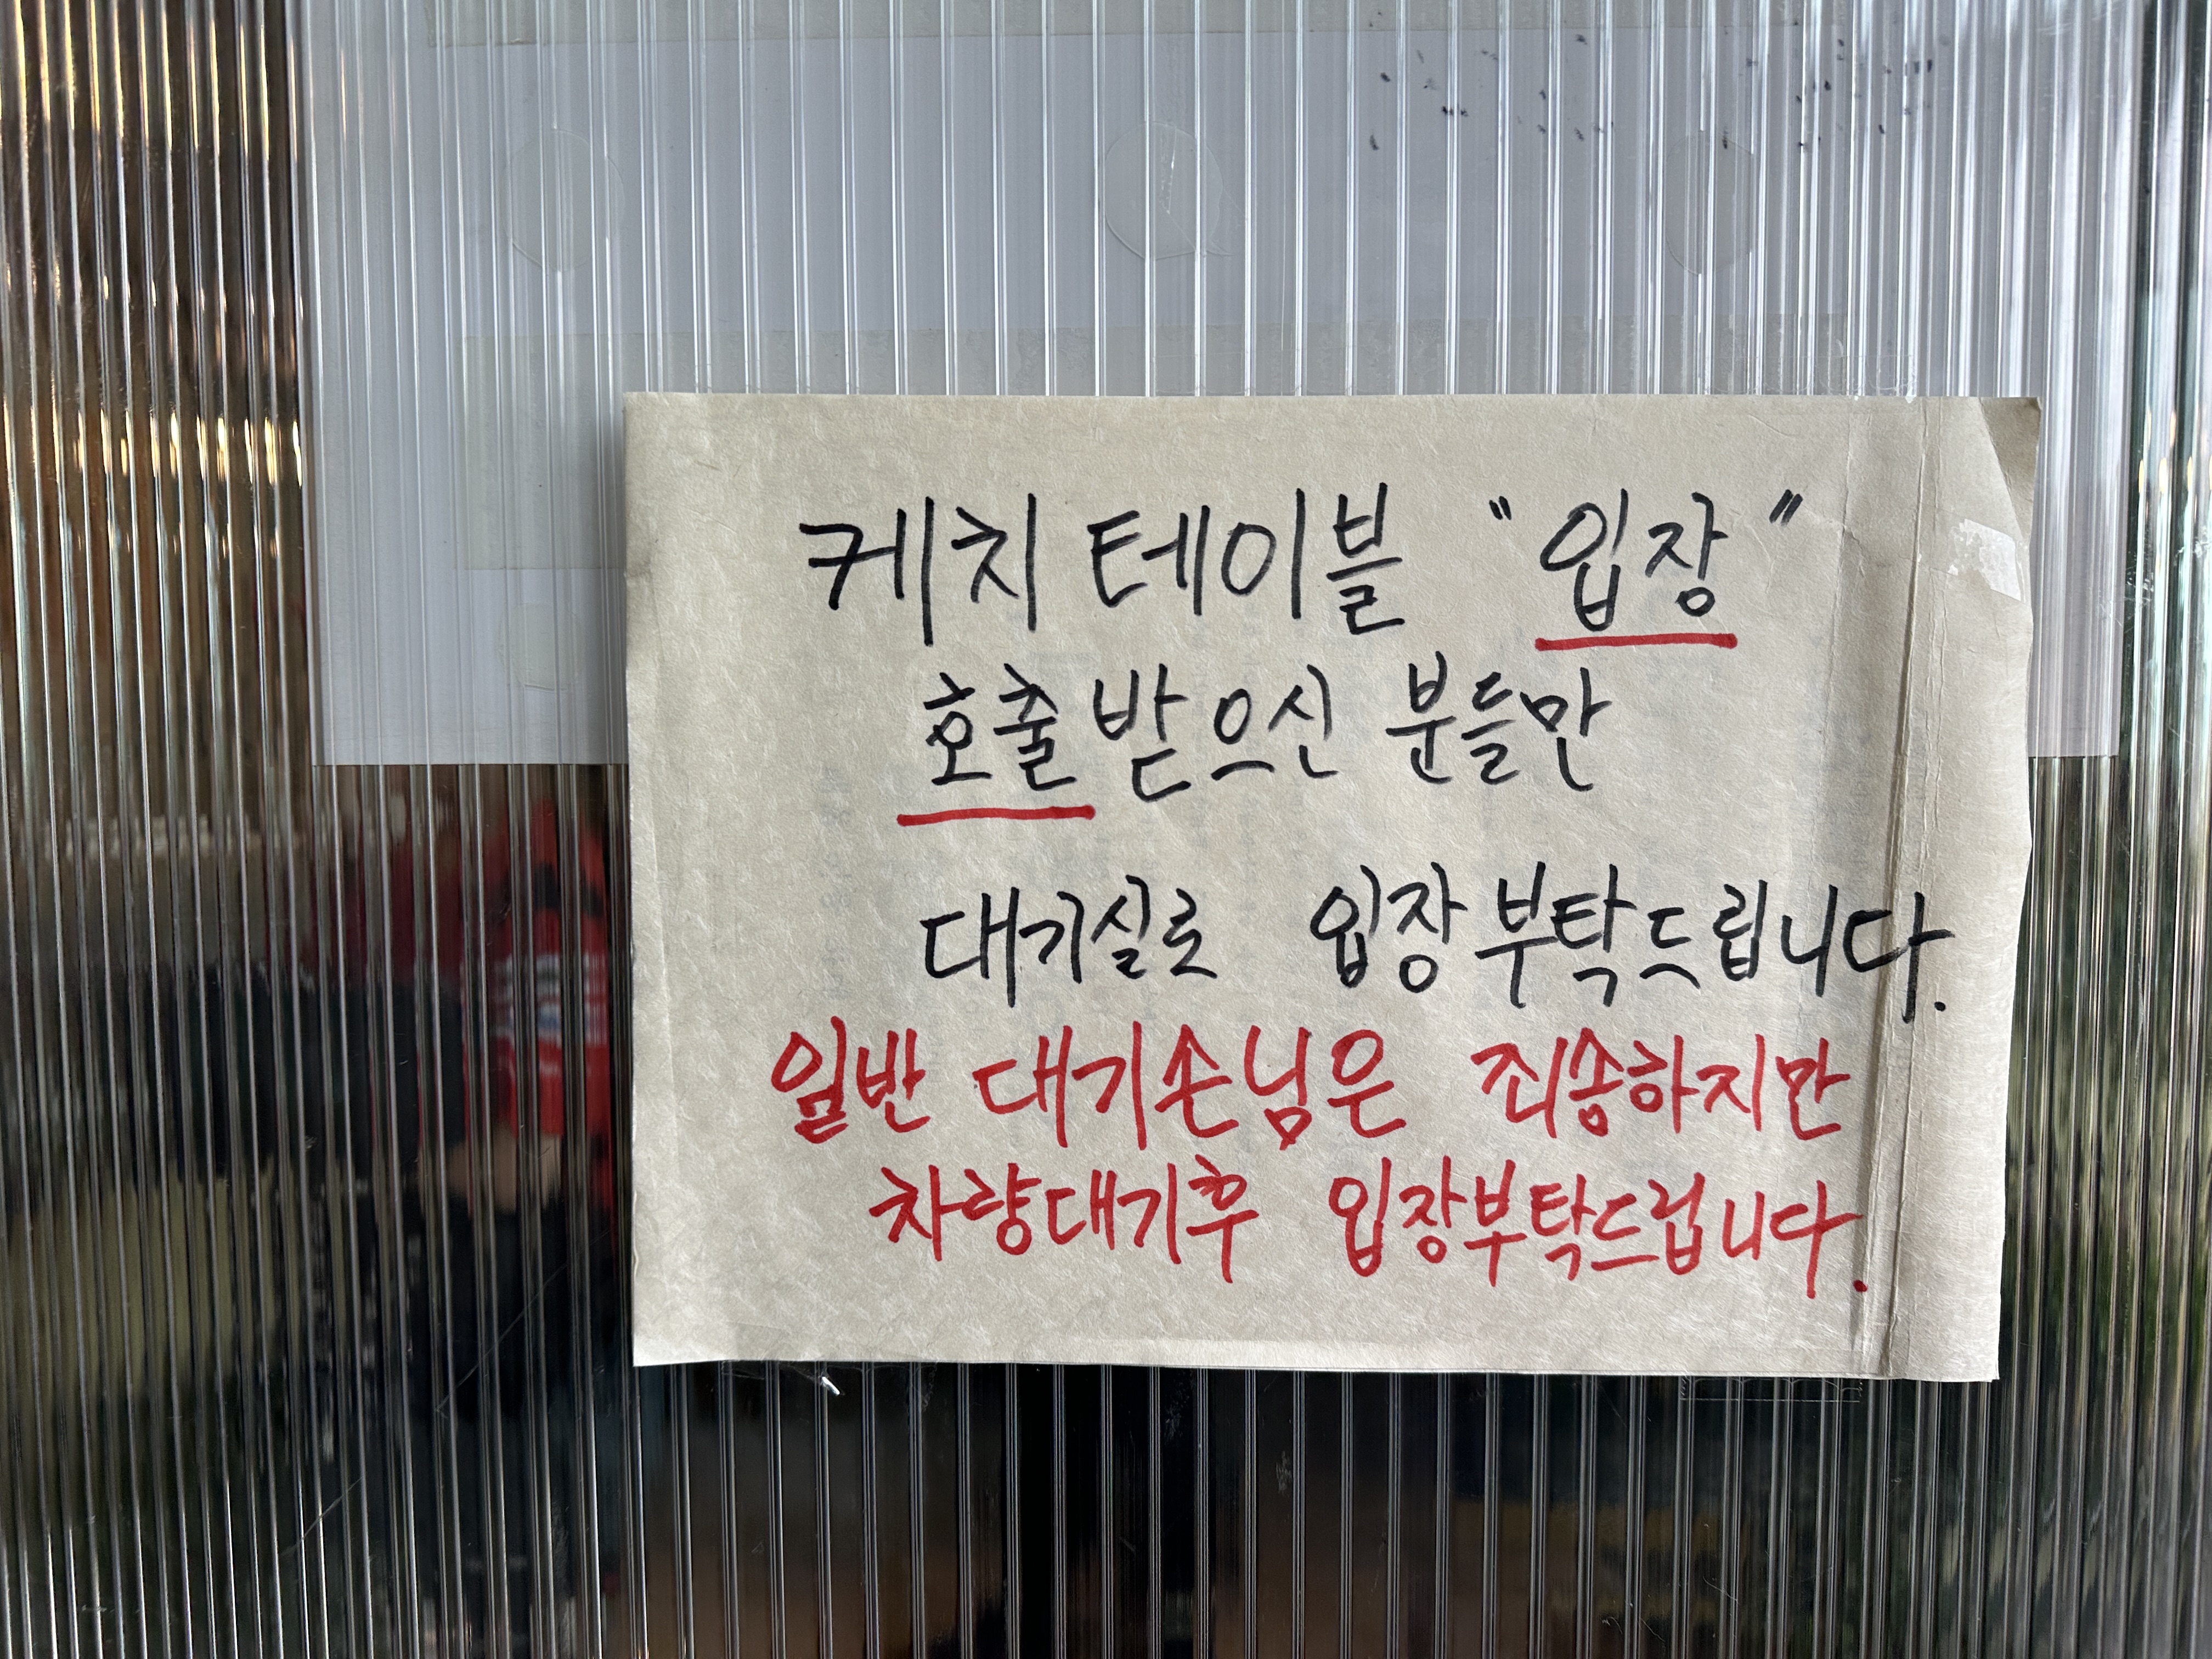 케치 테이블 "입장"
호출 받으신 분들만
대기실로 입장 부탁드립니다.
일반 대기손님은 죄송하지만
차량대기후 입장부탁드립니다.